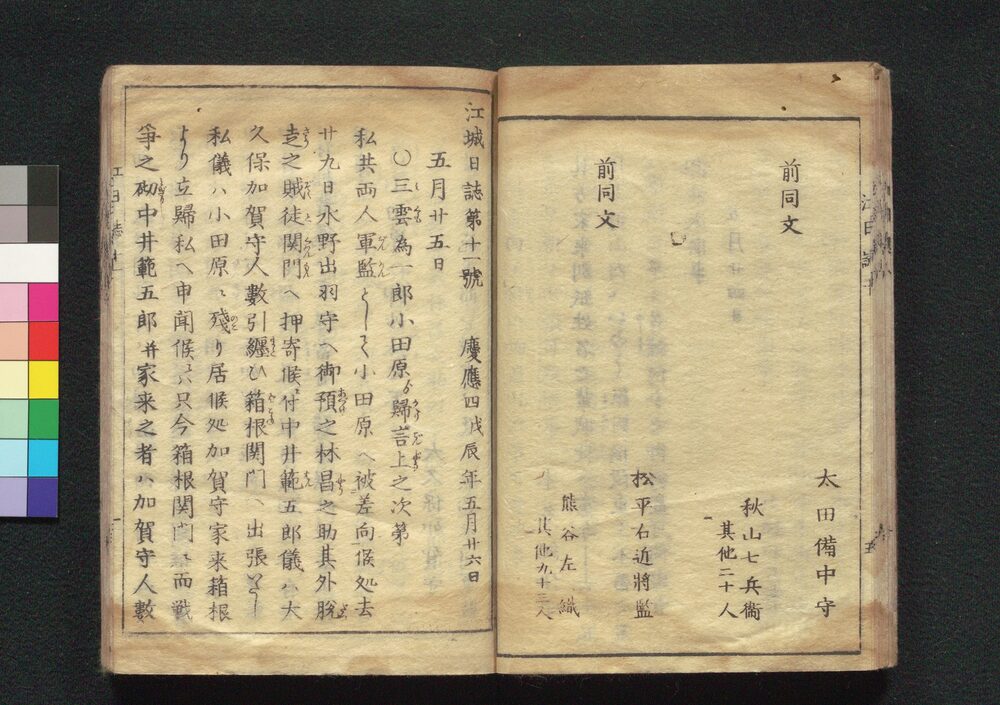 太田備中守
前同文
秋山七兵衞
其他二十人
松平右近將監
前同文
熊谷左織
其他九十三人
江城日誌第十一號 慶應四戊辰年五月廿六日
五月廿五日
○三雲為一郎小田原ゟ歸言上之次第
私共両人軍監として小田原へ被差向候処去
廿九日水野出羽守へ御預之林昌之助其外脱
走之賊徒関門へ押寄候ニ付中井範五郎儀ハ大
久保加賀守人數引纏ひ箱根関門へ出張いたし
私儀ハ小田原ニ殘り居候処加賀守家来箱根
より立歸私へ申聞候ニハ只今箱根関門ニ而戦
爭之砌中井範五郎并家来之者ハ加賀守人數